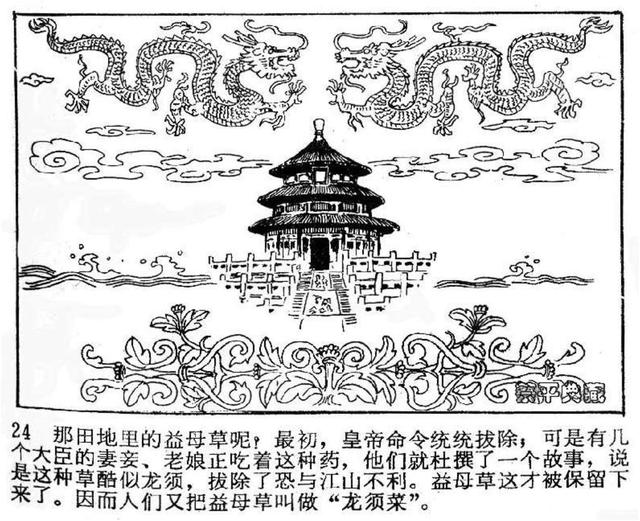 景平典藏
24 那田地里的益母草呢？最初，皇帝命令统统拔除；可是有几
个大臣的妻妾、老娘正吃着这种药，他们就杜撰了一个故事，说
是这种草酷似龙须，拔除了恐与江山不利。益母草这才被保留下
来了。因而人们又把益母草叫做“龙须菜”。